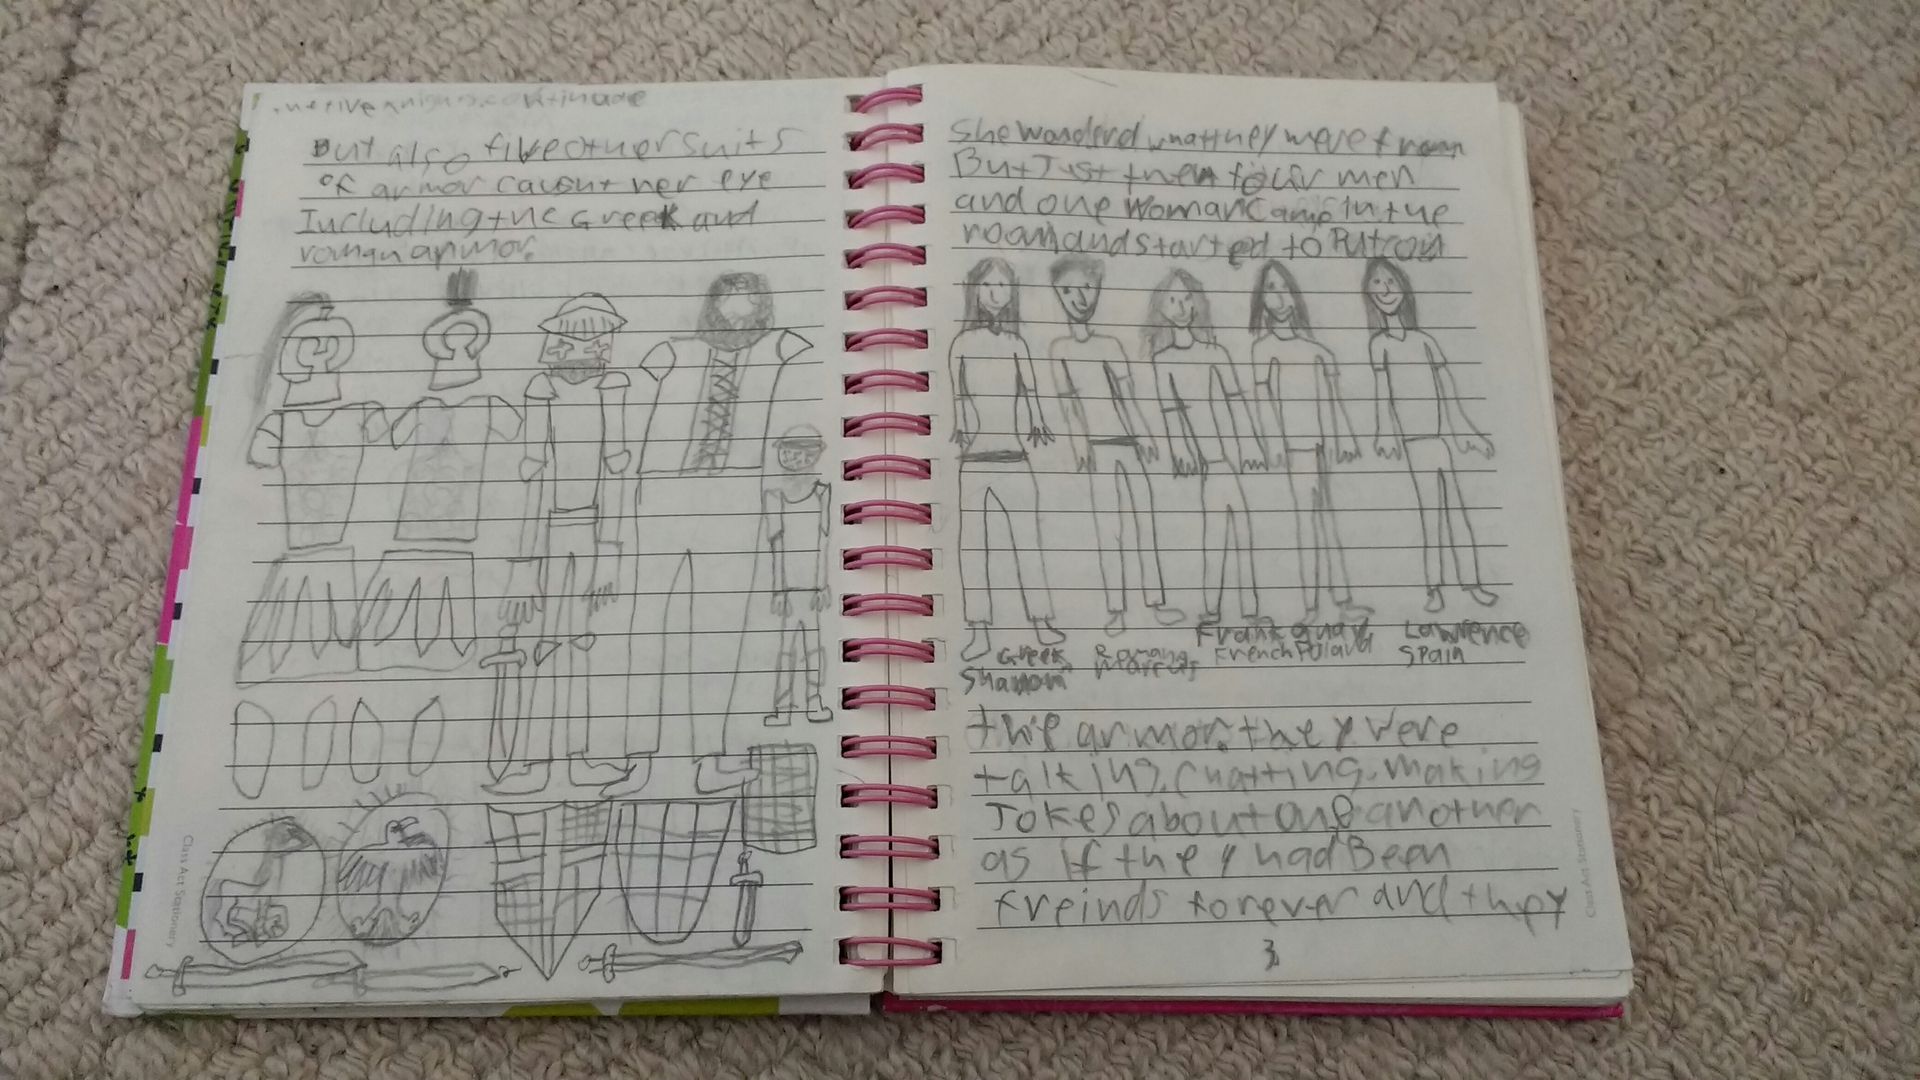 five knights continude
But also five other suits
of armor caught her eye
Including the Greek and
roman armor.
Class Act Stationery
She wanderd what they were from
But Just then four men
and one woman came in the
room and started to Put on
Greek
Shannon
Romans
Frank
French
Poland
Lawrence
Spain
the armor. they were
talking, chatting, making
Jokes about one another
as if they had Been
freinds forever and they
3
Class Act Stationery